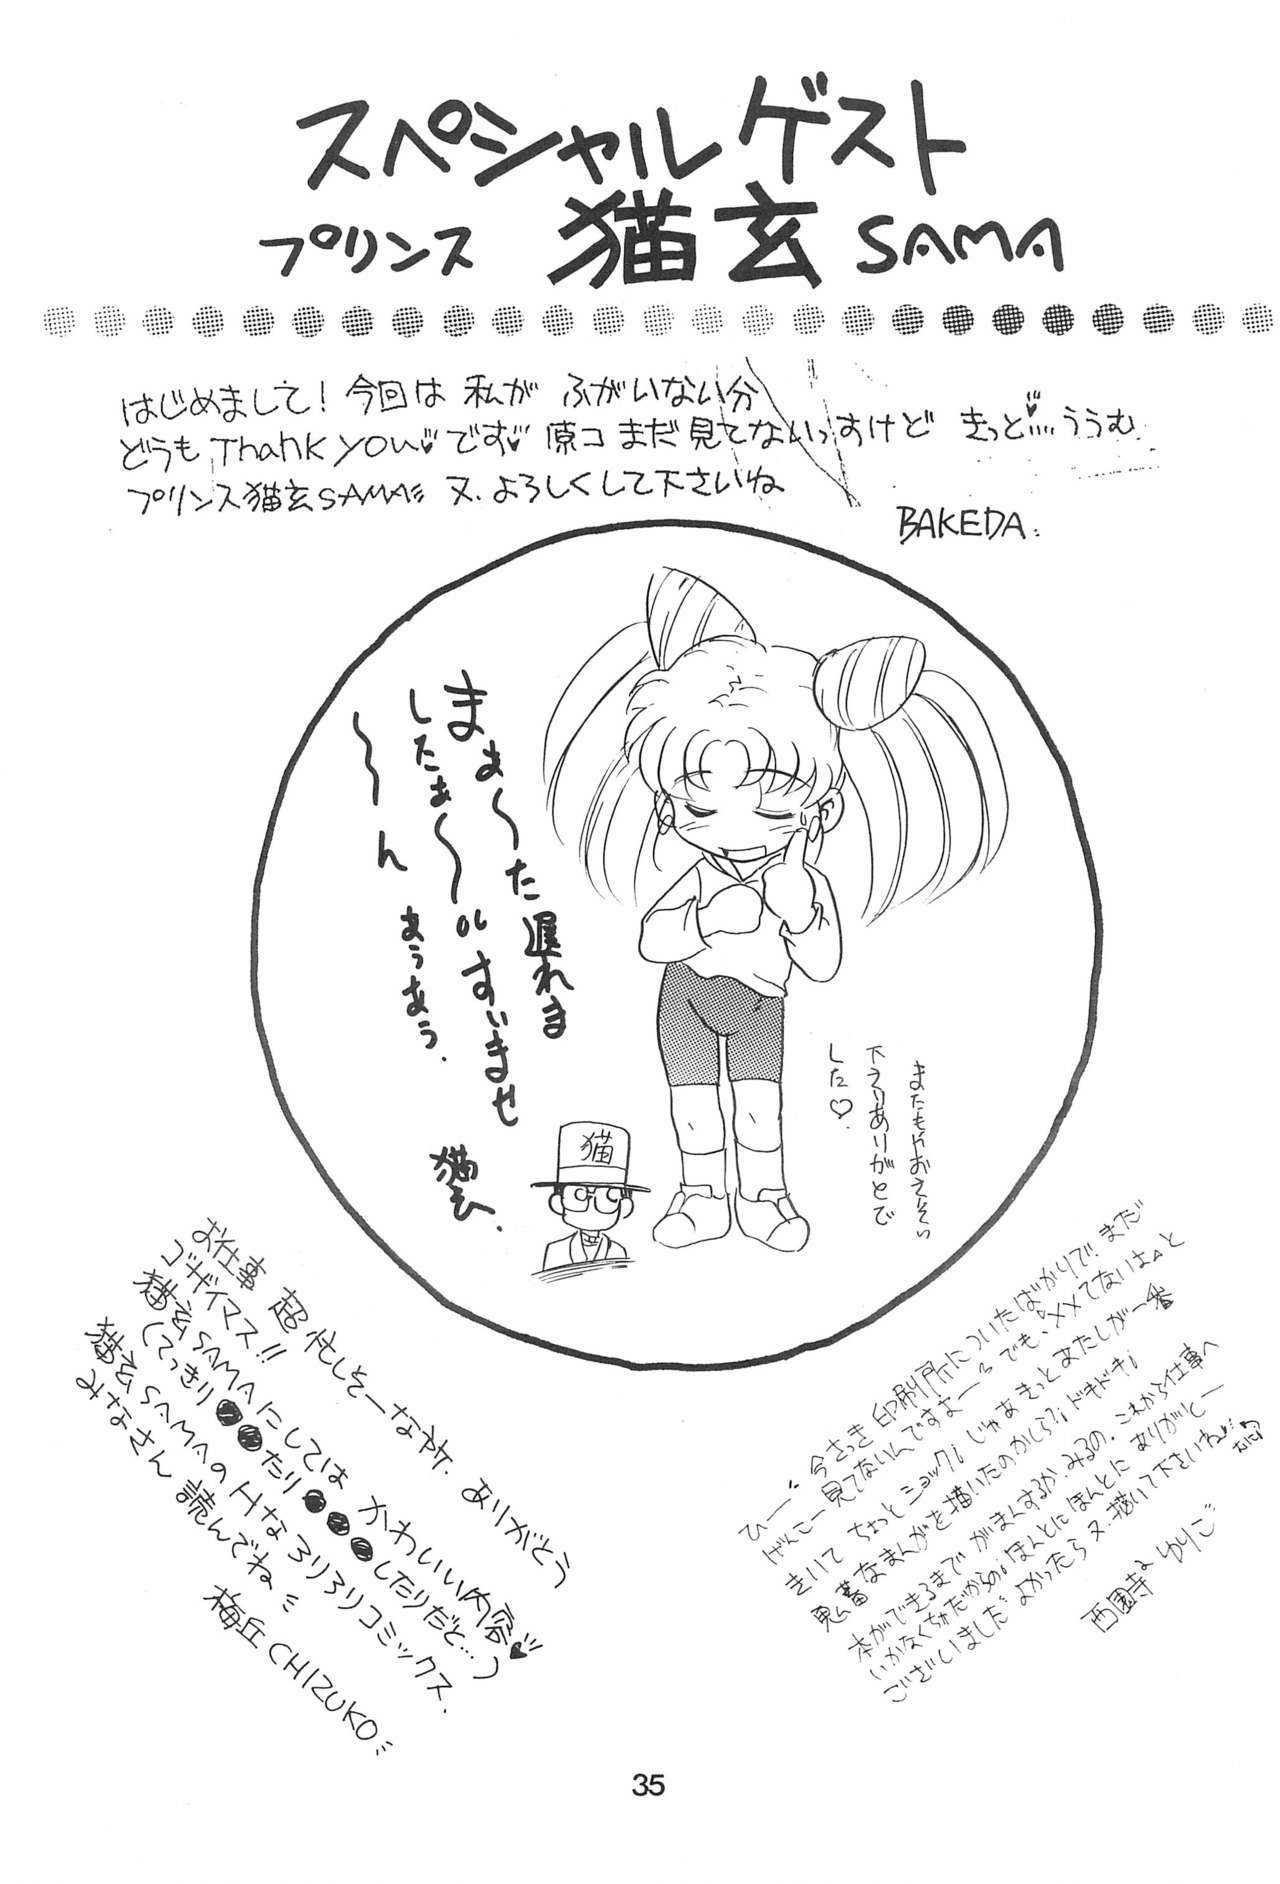 スペシャルゲスト
プリンス 猫玄 SAMA
はじめまして！今回は 私が ふがいない分
どうも Thank you♥です♥ 原コ まだ 見てないっすけど きっと♥....ううむ
プリンス猫玄SAMA 又、よろしくして下さいね
BAKEDA
まぁ〜た遅れま
したぁ〜 すいませ
〜〜ん まぅまぅ.
猫玄.
猫
またもやおえそぃ
下えりありがとで
した♡.
お仕事 超 忙しそーなヤケ. ありがとう
ゴザイマス!!
猫玄SAMAにしては かわいい内容♥
(てっきり●●たり●●●したりだと…)
猫玄SAMAのHなろりろりコミックス.
みなさん 読んでね
梅丘CHIZUKO
ひー 今さっき 印刷所についたばかりで、まだ
げんこー 見てないんですよー でも、××てないはと
きいて ちょっと ショック! じゃあ きっと あたしが一番
鬼畜なまんがを描いたのかしら?! ドキドキ!
本ができるまで がまんするか、みるの. これから仕事へ
いかなくちゃだからの! ほんとに ほんとに ありがとー
ございました よかったら 又、描いて下さいね♥
西園寺 ゆりこ
35